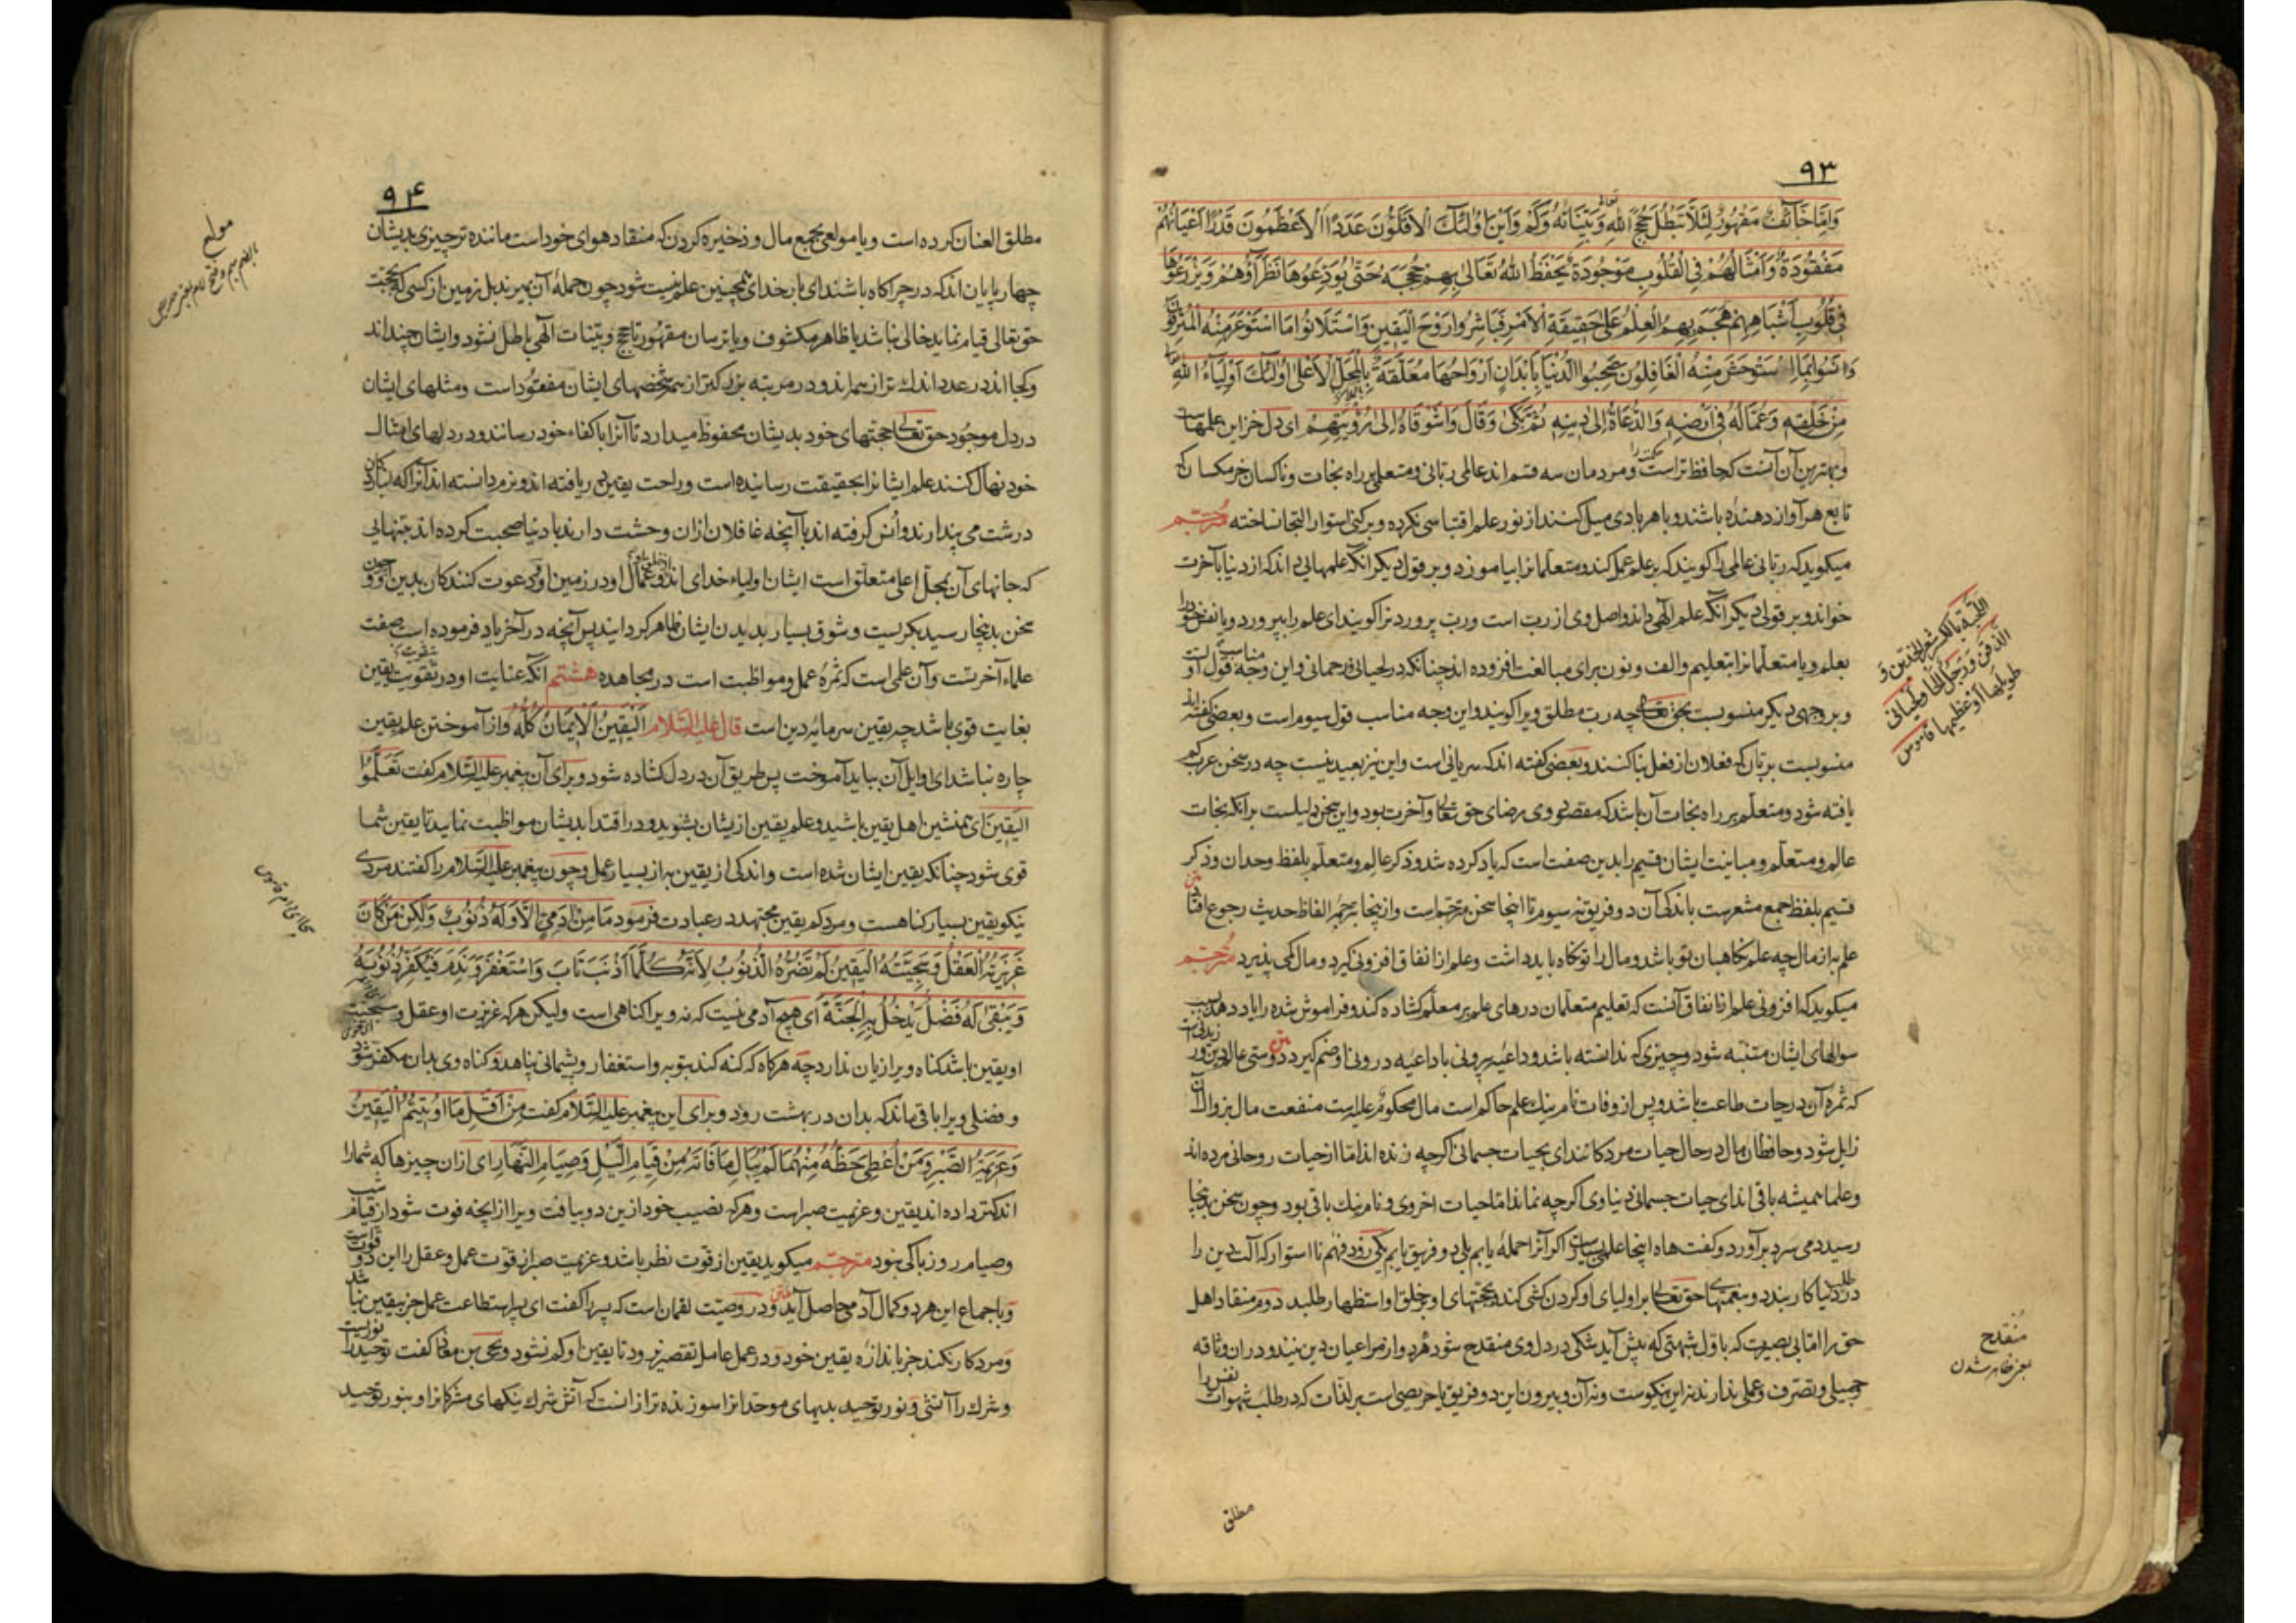 ۹۳
وَاِمَّا خَائِفٌ مَقْهُورٌ لِئَلَّا تَبْطُلَ حُجَجُ اللهِ تعالی وَبَيِّنَاتُهُ وَكَمْ وَاَيْنَ اُولٰئِكَ الْاَقَلُّونَ عَدَدًا الْاَعْظَمُونَ قَدْرًا اَعْيَانُهُمْ
مَفْقُودَةٌ وَاَمْثَالُهُمْ فِي الْقُلُوبِ مَوْجُودَةٌ يَحْفَظُ اللهُ تَعَالَى بِهِمْ حُجَجَهُ حَتَّى يُودِعُوهَا نُظَرَآؤَهُمْ وَيَزْرَعُوهَا
فِي قُلُوبِ اَشْبَاهِهِمْ هَجَمَ بِهِمُ الْعِلْمُ عَلَى حَقِيقَةِ الْاَمْرِ فَبَاشَرُوا رَوْحَ الْيَقِينِ وَاسْتَلَانُوا مَا اسْتَوْعَرَ مِنْهُ الْمُتْرَفُونَ
وَاَنِسُوا بِمَا اسْتَوْحَشَ مِنْهُ الْغَافِلُونَ صَحِبُوا الدُّنْيَا بِاَبْدَانٍ اَرْوَاحُهَا مُعَلَّقَةٌ بِالْمَحَلِّ الْاَعْلَى اُولٰئِكَ اَوْلِيَاءُ اللهِ
مِنْ خَلْقِهِ وَعُمَّالُهُ فِي اَرْضِهِ وَالدُّعَاةُ اِلَى دِينِهِ ثُمَّ بَكَى وَقَالَ وَاشَوْقَاهُ اِلَى رُؤْيَتِهِمْ ای دل خزاین علمهاست
و بهترین آن آنست که حافظ تراست و مردمان سه قسم اند عالمی ربّانی و متعلم بر راه نجات و ناکسان خرمکسان که
تابع هر آواز دهنده باشند و با هر بادی میل کنند از نور علم اقتباسی نکرده و بر کنی استوار التجا نساخته مترجم
میکوید که ربّانی عالمی را کویند که بر علم عمل کند و متعلّمانرا بیاموزد و بر قول دیکر آنکه علمهایی داند که از دنیا بآخرت
خواند و بر قولی دیکر آنکه علم الهی داند و اصل وی از رب است و رب پروردنرا کویند ای علم را بپرورد و یا نفس خود را
بعلم و یا متعلّمانرا بتعلیم و الف و نون برای مبالغت افزوده اند چنانکه در لحیانی و رحمانی و این وجه مناسب قول اوّل است
و بر وجهی دیکر منسوبست بحق تعالی چه رب مطلق ویرا کویند و این وجه مناسب قول سیوم است و بعضی کفته اند
منسوبست بربّان که فعلان از فعل بنا کنند و بعضی کفته اند که سریانی است و این نیز بعید نیست چه در سخن عرب کم
یافته شود و متعلّم بر راه نجات آن باشد که مقصود وی رضای حق تعالی و آخرت بود و این سخن دلیلست برانکه نجات
عالم و متعلّم و مباینت ایشان قسیم را بدین صفت است که یاد کرده شد و ذکر عالم و متعلّم بلفظ وحدان و ذکر
قسیم بلفظ جمع مشعرست باندکی آن دو فریق نه سیوم تا اینجا سخن مترجم است و ازینجا بترجمه الفاظ حدیث رجوع افتاد
علم به از مال چه علم نکاهبان تو باشد و مال را تو نکاه باید داشت و علم از انفاق افزونی کیرد و مال کمی پذیرد مترجم
میکوید که افزونی علم از انفاق آنست که تعلیم متعلّمان درهای علم بر معلّم کشاده کند و فراموش شده را یاد دهد بسبب
سوالهای ایشان متنبّه شود و چیزی که ندانسته باشد و داعیه بیرونی با داعیه درونی او ضم کیرد دوستی عالم دین ورزیدنیست
که ثمره آن درجات طاعت باشد و پس از وفات نام نیک علم حاکم است مال محکوم علیه است منفعت مال بزوال آن
زایل شود و حافظان مال در حال حیات مردکانند ای بحیات جسمانی اکرچه زنده اند امّا از حیات روحانی مرده اند
و علما همیشه باقی اند ای حیات جسمانی دنیاوی اکرچه نماند امّا حیات اخروی و نام نیک باقی بود و چون سخن بدینجا
رسید دمی سرد برآورد و کفت هاه اینجا علمی بسیارست اکر آنرا حمله یابم بلی دو فریق یابم یکی زود فهم نا استوار که آلت دین را
در طلب دنیا کار بندد و بنعمتهای حق تعالی بر اولیای او کردن کشی کند و بحجّتهای او بر خلق او استظهار طلبد دوم منقاد اهل
حق را امّا بی بصیرت که باوّل شبهتی که پیش آید شکی در دل وی منقدح شود هر دو از مراعیان دین نیند و دران وثاقه
جمیلی و تصرّف و عملی ندارند نه این نیکوست و نه آن و بیرون این دو فریق یا حریصی است بر لذّات که در طلب شهوات نفس را
مطلق
اللحیة بالکسر شعر الخدین و
الذقن و رجل الحی و لحیانی
طویلها او عظیمها قاموس
منقدح
یعنی ظاهر شدن
۹۴
مطلق العنان کرده است و یا مولعی بجمع مال و ذخیره کردن که منقاد هوای خود است ماننده تر چیزی بدیشان
چهار پایان اند که در چراکاه باشند ای بار خدای همچنین علم نیست شود چون حملۀ آن بمیرند بل زمین از کسی که بحجّت
حق تعالی قیام نماید خالی نباشد یا ظاهر مکشوف و یا ترسان مقهور تا حجج و بیّنات الهی باطل نشود و ایشان چند اند
و کجا اند در عدد اندک تر از همه اند و در مرتبه بزرکتر از همه شخصهای ایشان مفقودست و مثلهای ایشان
در دل موجود حق تعالی حجتهای خود بدیشان محفوظ میدارد تا آنرا باکفاء خود رسانند و در دلهای امثال
خود نهال کنند علم ایشانرا بحقیقت رسانیده است و راحت یقین دریافته اند و نرم دانسته اند آنرا که
درشت می پندارند و انس کرفته اند باآنچه غافلان ازان وحشت دارند با دنیا صحبت کرده اند بتنهایی
که جانهای آن بمحلّ اعلی متعلّق است ایشان اولیاء خدای اند و عمّال او در زمین او و دعوت کنندکان بدین او و چون
سخن بدینجا رسید بکریست و شوق بسیار بدیدن ایشان ظاهر کردانید پس آنچه در آخر یاد فرموده است صفت
علماء آخرتست و آن علمی است که ثمرۀ عمل و مواظبت است در مجاهده هشتم آنکه عنایت او در تقویت یقین
بغایت قوی باشد چه یقین سرمایه دین است قال علیه السلام اَلْيَقِينُ الْاِيمَانُ كُلُّهُ و از آموختن علم یقین
چاره نباشد ای اوایل آن بباید آموخت پس طریق آن در دل کشاده شود و برای آن پیغمبر علیه السّلام کفت تَعَلَّمُوا
الْيَقِينَ ای همنشین اهل یقین باشید و علم یقین ازیشان بشنوید و در اقتدا بدیشان مواظبت نمایید تا یقین شما
قوی شود چنانکه یقین ایشان شده است و اندکی از یقین به از بسیار عمل و چون پیغمبر علیه السّلام را کفتند مردی
نیکو یقین بسیار کناهست و مرد کم یقین مجتهد در عبادت فرمود مَا مِنْ اٰدَمِيٍّ اِلَّا وَلَهُ ذُنُوبٌ وَلٰكِنْ مَنْ كَانَ
غَرِيزَتُهُ الْعَقْلَ وَسَجِيَّتُهُ الْيَقِينَ لَمْ تَضُرَّهُ الذُّنُوبُ لِاَنَّهُ كُلَّمَا اَذْنَبَ تَابَ وَاسْتَغْفَرَ وَنَدِمَ فَيُكَفَّرُ ذُنُوبُهُ
وَيَبْقَى لَهُ فَضْلٌ يَدْخُلُ بِهِ الْجَنَّةَ ای هیچ آدمی نیست که نه ویرا کناهی است ولیکن هرکه غریزت او عقل و سجیّت
او یقین باشد کناه ویرا زیان ندارد چه هرکاه که کنه کند بتوبه و استغفار و پشیمانی پناهد و کناه وی بدان مکفّر شود
و فضلی ویرا باقی ماند که بدان در بهشت رود و برای این پیغمبر علیه السّلام کفت مِنْ اَقَلِّ مَا اُوتِيتُمُ الْيَقِينُ
وَعَزِيمَةُ الصَّبْرِ وَمَنْ اُعْطِيَ حَظَّهُ مِنْهُمَا لَمْ يُبَالِ مَا فَاتَهُ مِنْ قِيَامِ اللَّيْلِ وَصِيَامِ النَّهَارِ ای ازان چیزها که شمارا
اندکتر داده اند یقین و عزیمت صبرست و هرکه نصیب خود ازین دو بیافت ویرا از آنچه فوت شود از قیام شب
و صیام روز باکی نبود مترجم میکوید یقین از قوّت نظر باشد و عزیمت صبر از قوّت عمل و عقل را این دو قوّت است
و باجماع این هر دو کمال آدمی حاصل آید و در وصیّت لقمان است که پسر را کفت ای پسر استطاعت عمل جز بیقین نباشد
و مرد کار نکند جز باندازه یقین خود و در عمل عامل تقصیر نرود تا یقین او کم نشود و یحیی بن معاذ کفت توحید را نوریست
و شرک را آتشی و نور توحید بدیهای موحدانرا سوزنده تر ازانست که آتش شرک نیکهای مشرکانرا و بنور توحید
مولع